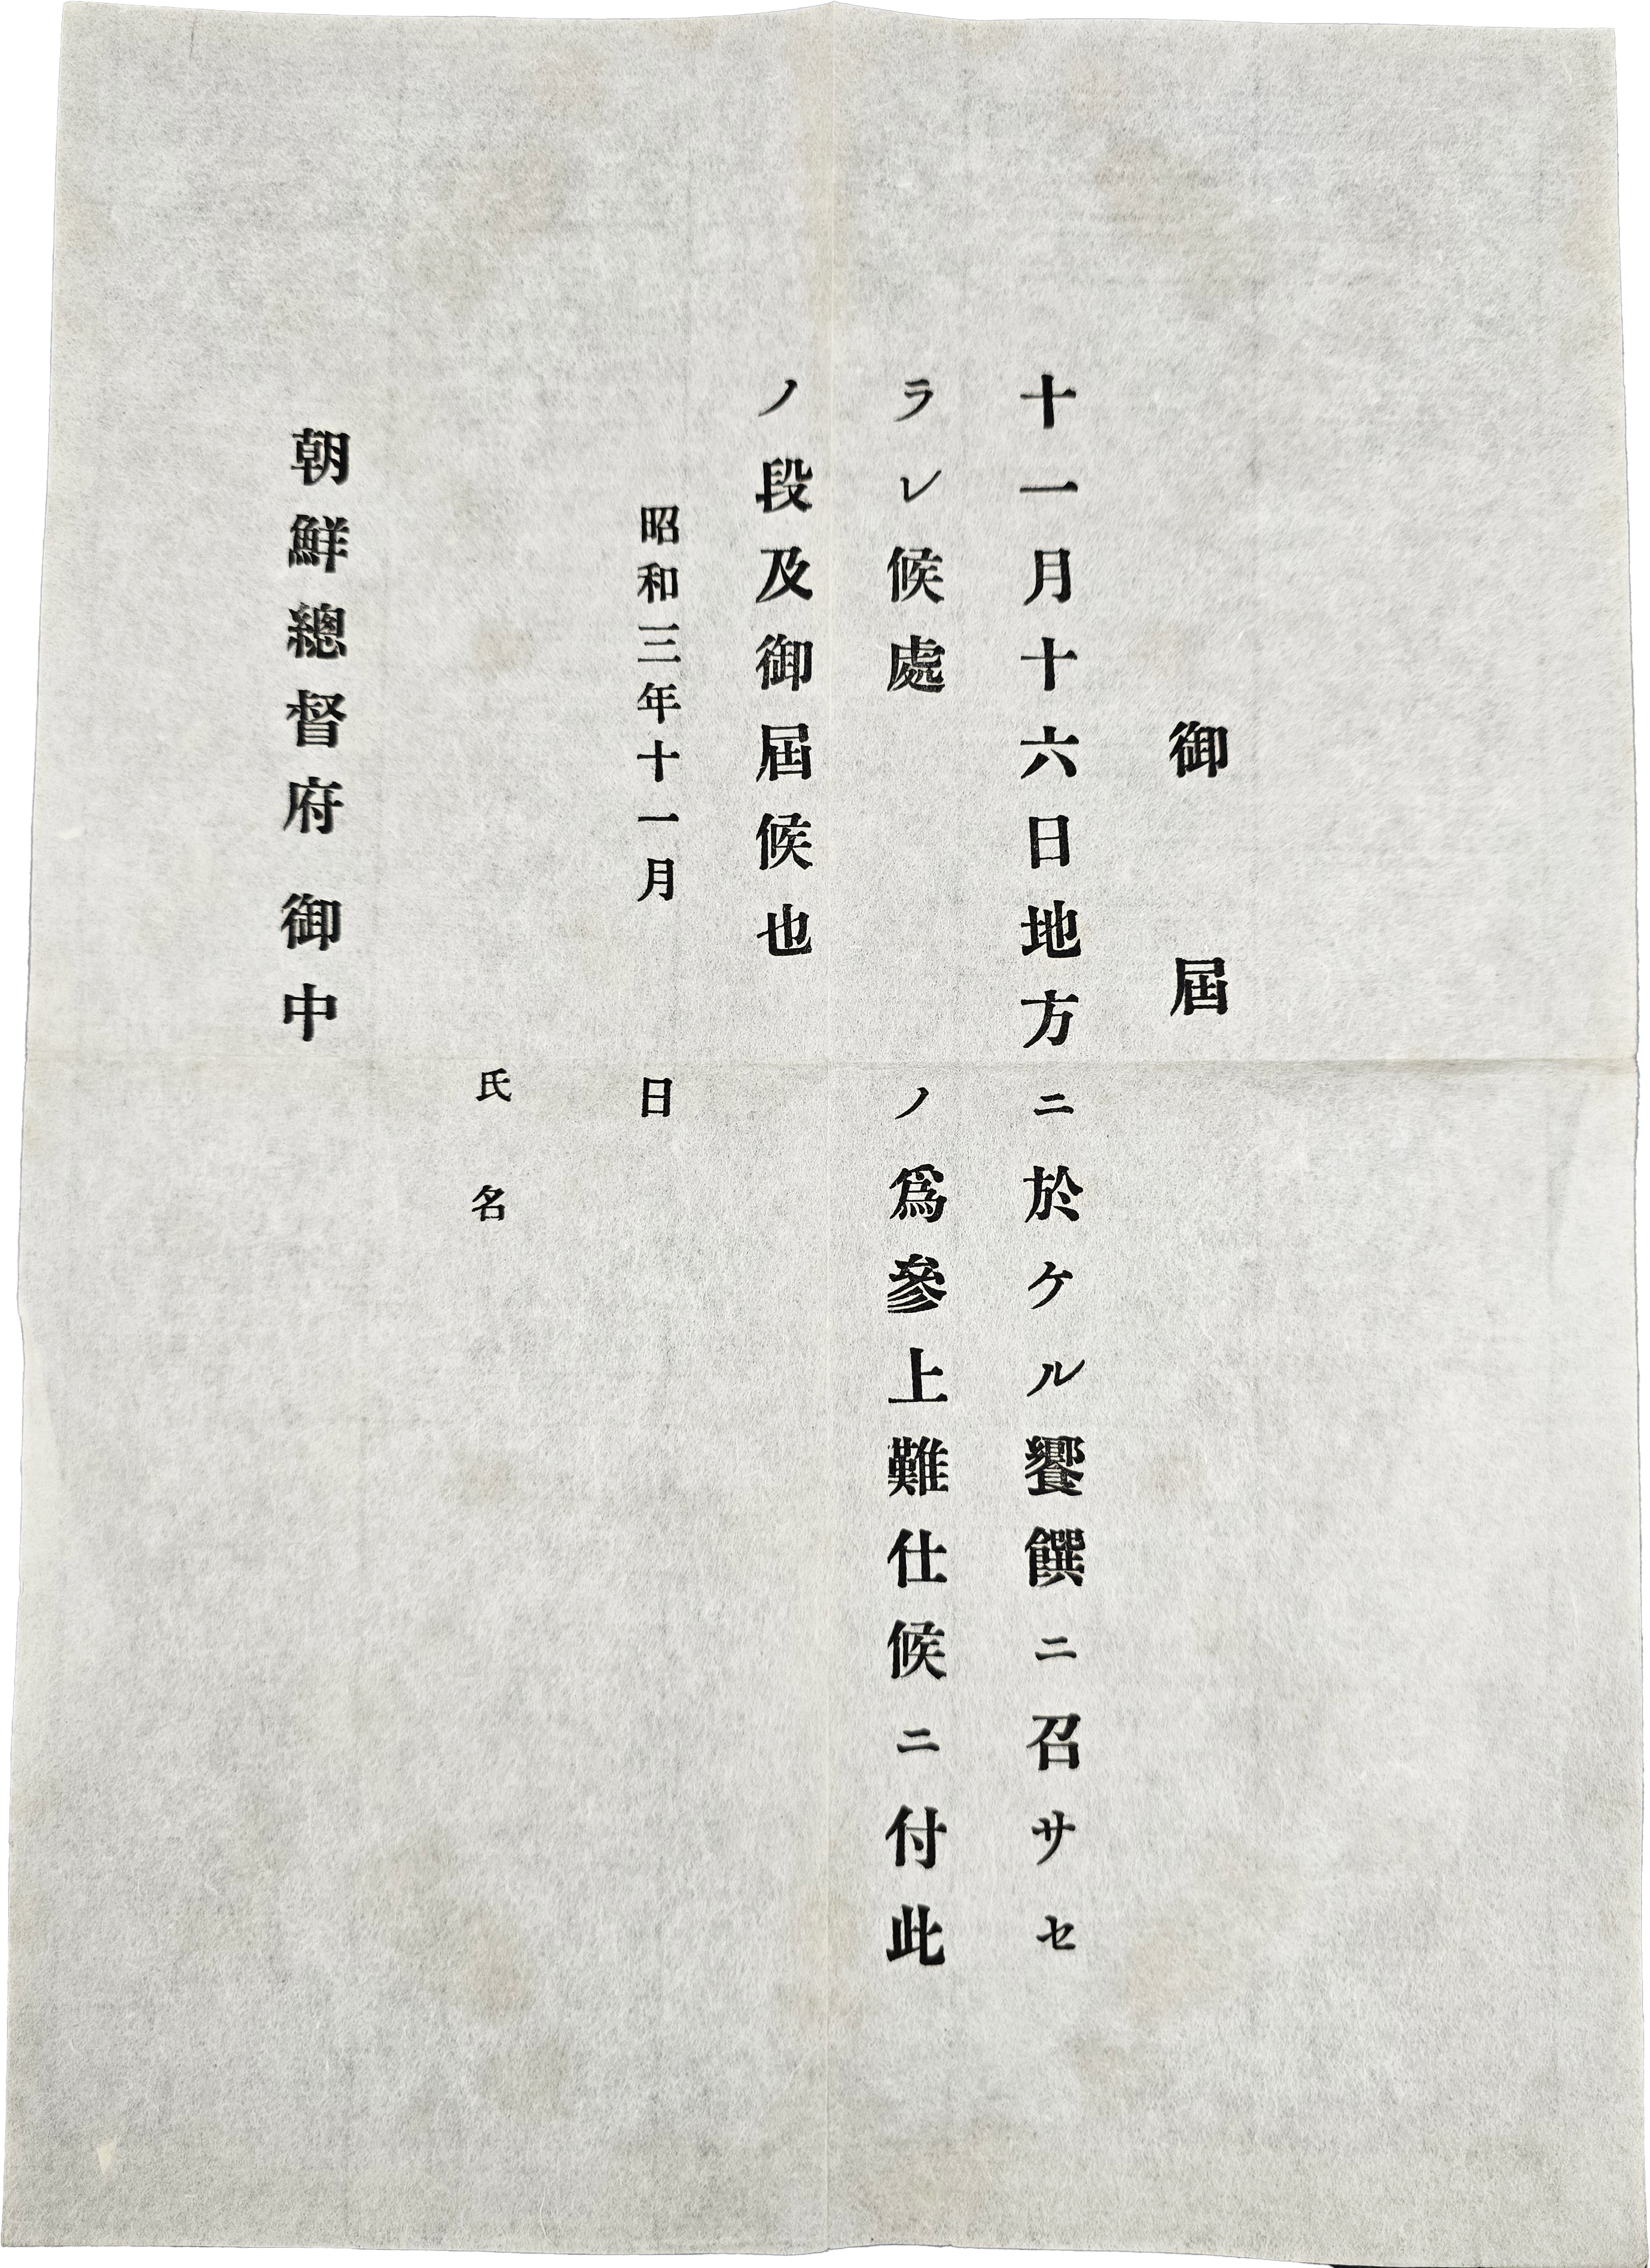 御屆
十一月十六日地方ニ於ケル饗饌ニ召サセ
ラレ候處　　　　ノ爲參上難仕候ニ付此
ノ段及御屆候也
昭和三年十一月　　　日
氏名
朝鮮總督府　御中